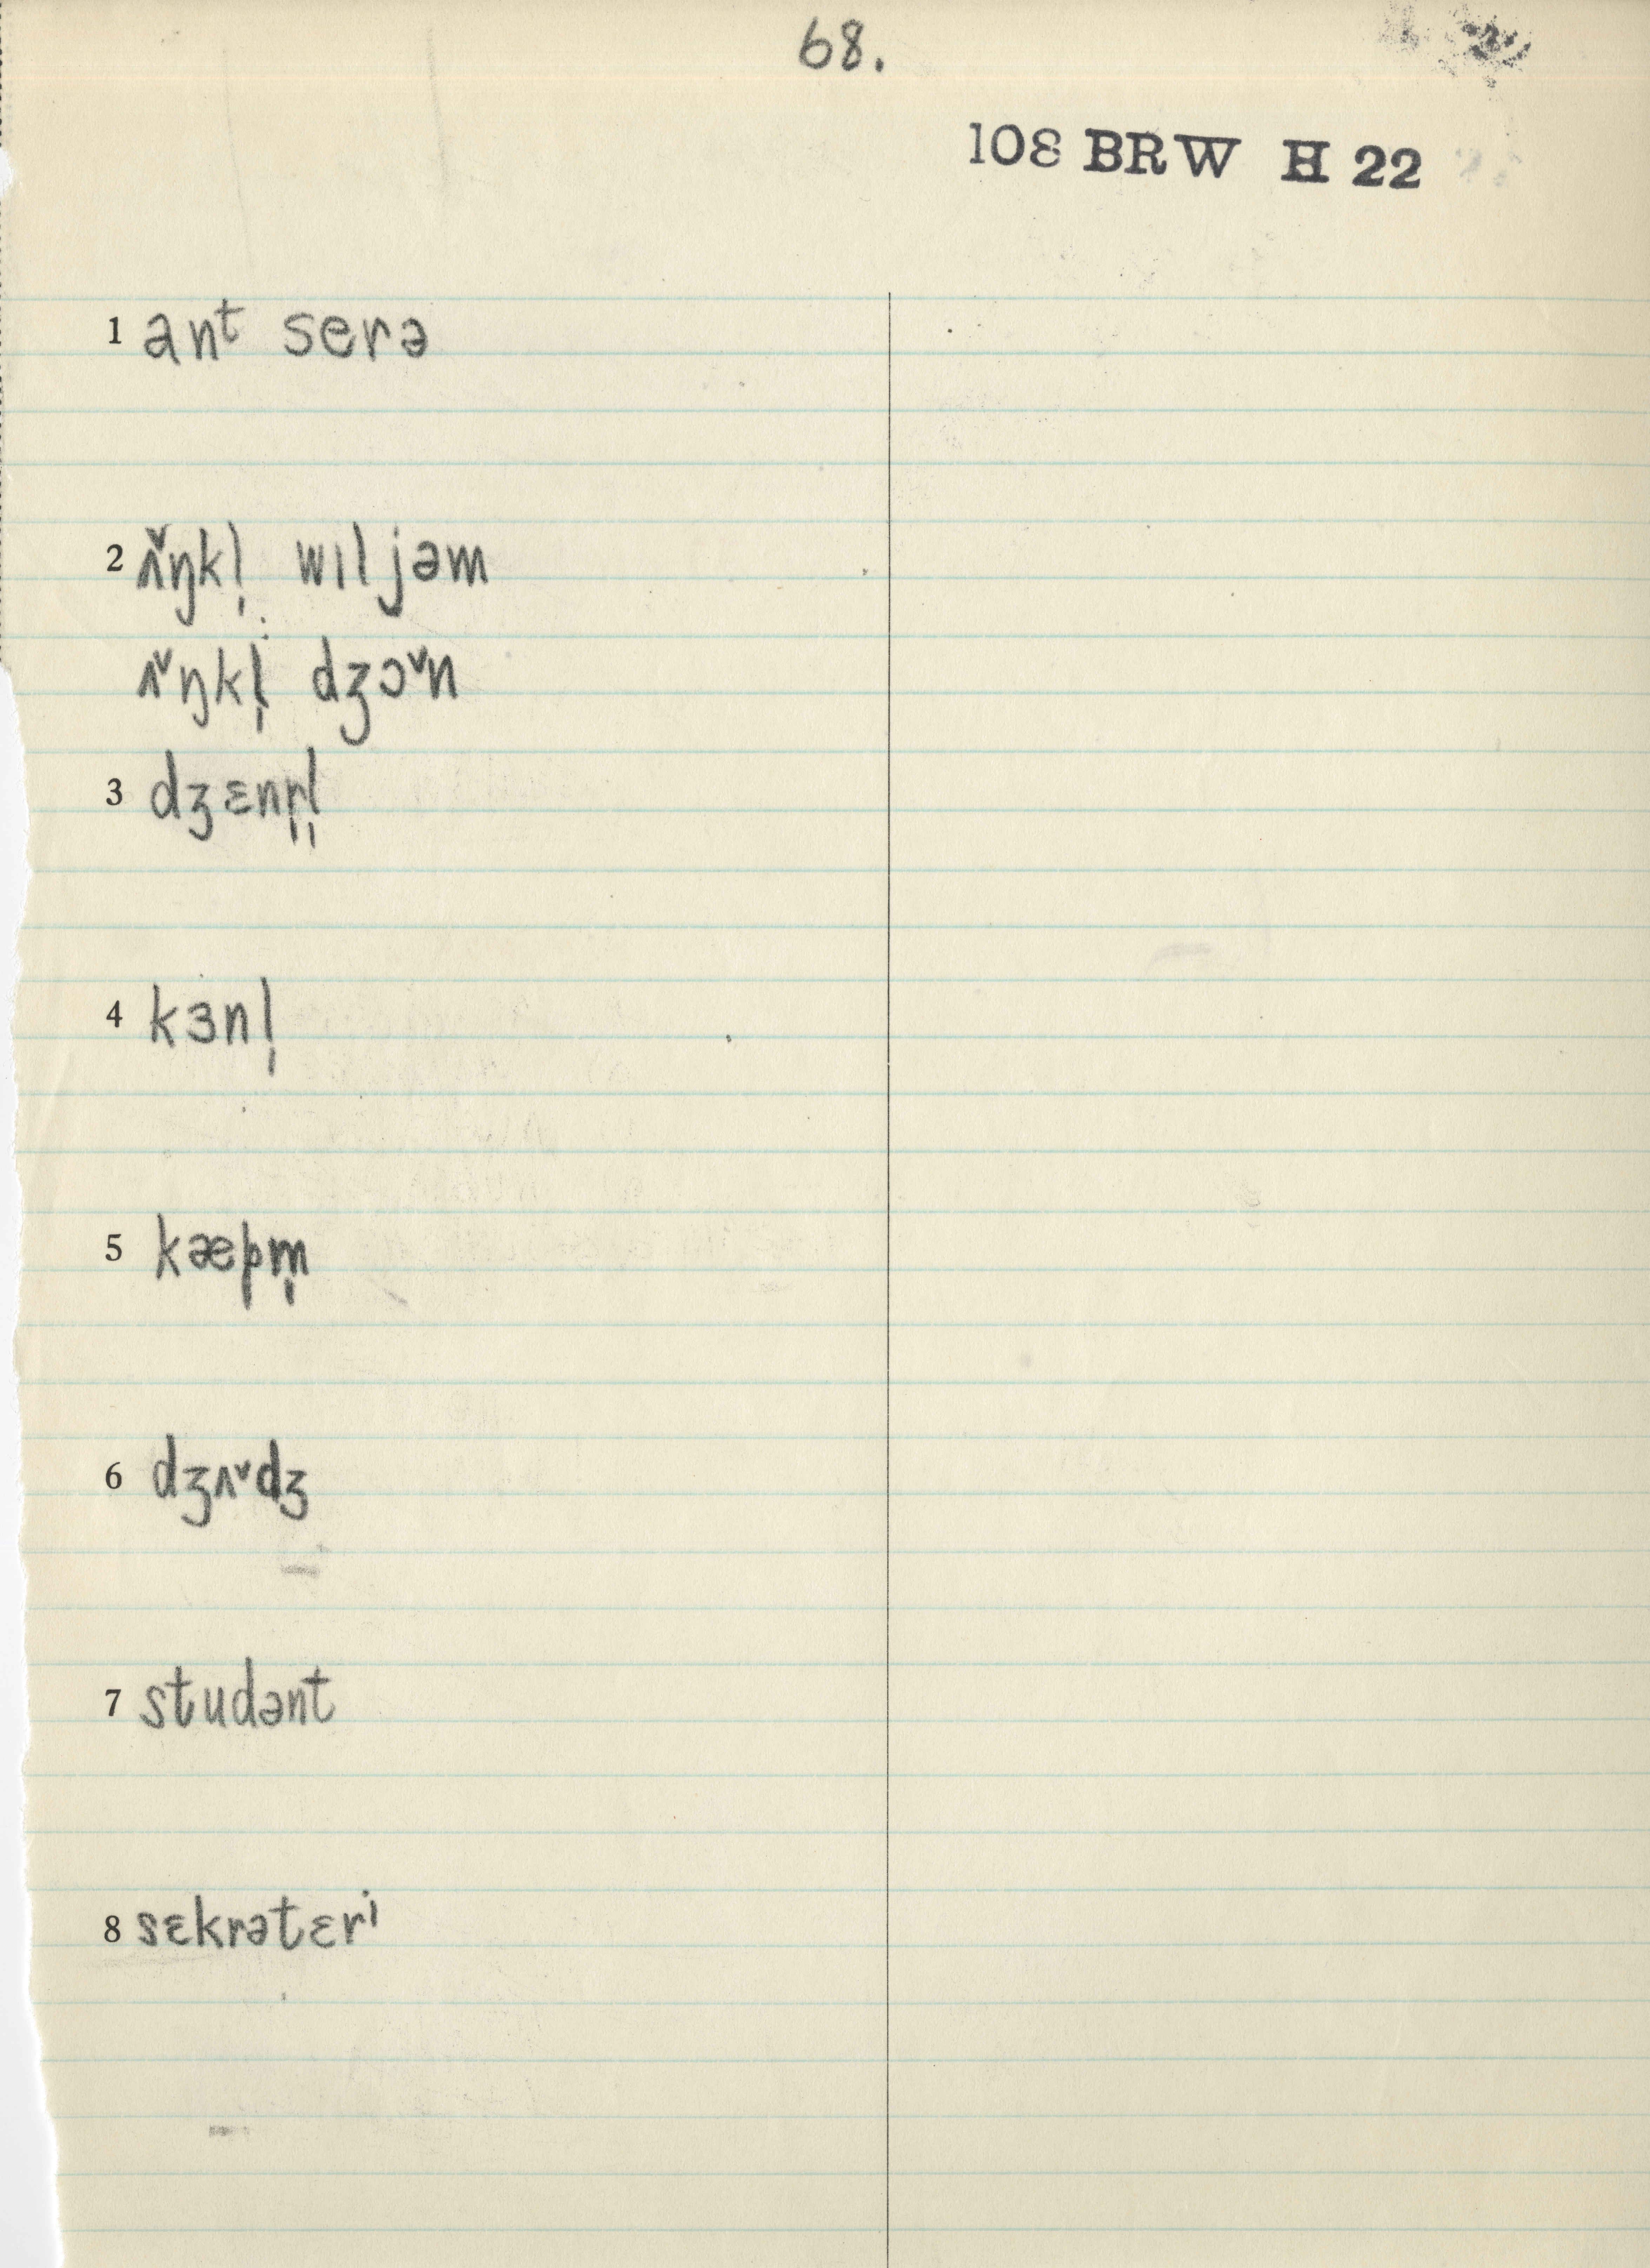 68.
108 BRW H 22
1 anᵗ serə
2 ʌ̌ŋkl̩ wıljəm
ʌˇŋkl̩ dʒɔˇn
3 dʒɛnr̩l̩
4 kɜnl̩
5 kæpm̩
6 dʒʌˇdʒ
7 studənt
8 sɛkrətɛrⁱ